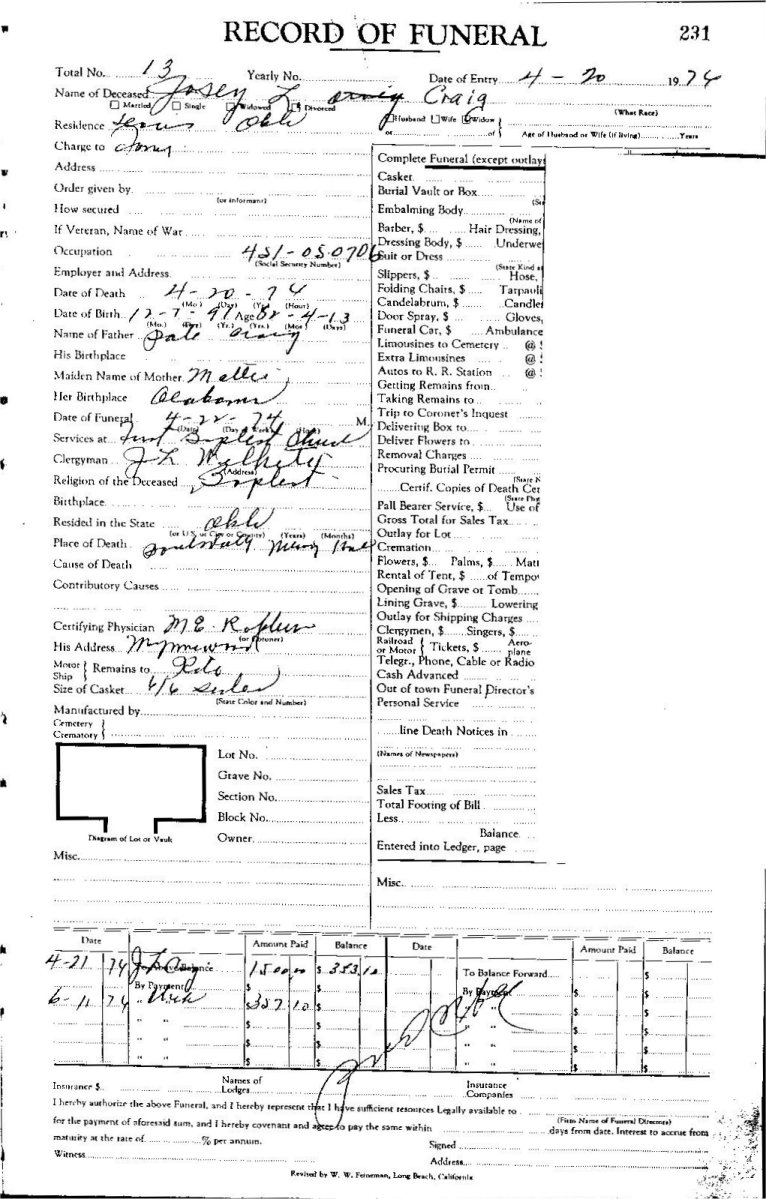 RECORD OF FUNERAL 231
Total No. 13 Yearly No. Date of Entry 4-20 1974
Name of Deceased Josey L Craig
Married Single Widowed Divorced Husband Wife Widow (What Race)
Residence Okla or of Age of Husband or Wife (if living) Years
Charge to
Address
Order given by
(or informant)
How secured
If Veteran, Name of War
Occupation 451-05-0706
(Social Security Number)
Employer and Address
Date of Death 4-20-74
(Mo.) (Day) (Yr.) (Hour)
Date of Birth 12-7-91 Age 82-4-13
(Mo.) (Day) (Yr.) (Yrs.) (Mos.) (Days)
Name of Father Craig
His Birthplace
Maiden Name of Mother Mattie
Her Birthplace Alabama
Date of Funeral 4-22-74 M.
(Date) (Day of Week) (Hour)
Services at First Baptist Church
Clergyman J L
(Address)
Religion of the Deceased Baptist
Birthplace
Resided in the State Okla
(or U.S. or City or County) (Years) (Months)
Place of Death
Cause of Death
Contributory Causes
Certifying Physician M E
(or Coroner)
His Address Wynnewood
Motor Ship Remains to
Size of Casket 6/6
(State Color and Number)
Manufactured by
Cemetery
Crematory
Lot No.
Grave No.
Section No.
Block No.
Diagram of Lot or Vault Owner
Misc.
Complete Funeral (except outlays
Casket
Burial Vault or Box
Embalming Body
(Name of
Barber, $ Hair Dressing,
Dressing Body, $ Underwe
Suit or Dress
(State Kind a
Slippers, $ Hose,
Folding Chairs, $ Tarpauli
Candelabrum, $ Candle
Door Spray, $ Gloves,
Funeral Car, $ Ambulance
Limousines to Cemetery @
Extra Limousines @
Autos to R. R. Station @
Getting Remains from
Taking Remains to
Trip to Coroner's Inquest
Delivering Box to
Deliver Flowers to
Removal Charges
Procuring Burial Permit
(State N
Certif. Copies of Death Cer
Pall Bearer Service, $ Use of
Gross Total for Sales Tax
Outlay for Lot
Cremation
Flowers, $ Palms, $ Mat
Rental of Tent, $ of Tempo
Opening of Grave or Tomb
Lining Grave, $ Lowering
Outlay for Shipping Charges
Clergymen, $ Singers, $
Railroad or Motor Tickets, $ Aeroplane
Telegr., Phone, Cable or Radio
Cash Advanced
Out of town Funeral Director's
Personal Service
line Death Notices in
(Names of Newspapers)
Sales Tax
Total Footing of Bill
Less
Balance
Entered into Ledger, page
Misc.
Date Amount Paid Balance Date Amount Paid Balance
4-21 74 To Above Balance 1500.00 $ 353.10 To Balance Forward $
6-11 74 By Payment $357.10 $ By Payment $ $
" " $ $ " " $ $
" " $ $ " " $ $
" " $ $ " " $ $
Insurance $ Names of Lodges Insurance Companies
I hereby authorize the above Funeral, and I hereby represent that I have sufficient resources Legally available to
(Firm Name of Funeral Directors)
for the payment of aforesaid sum, and I hereby covenant and agree to pay the same within days from date. Interest to accrue from
maturity at the rate of % per annum. Signed
Witness Address
Revised by W. W. Feineman, Long Beach, California